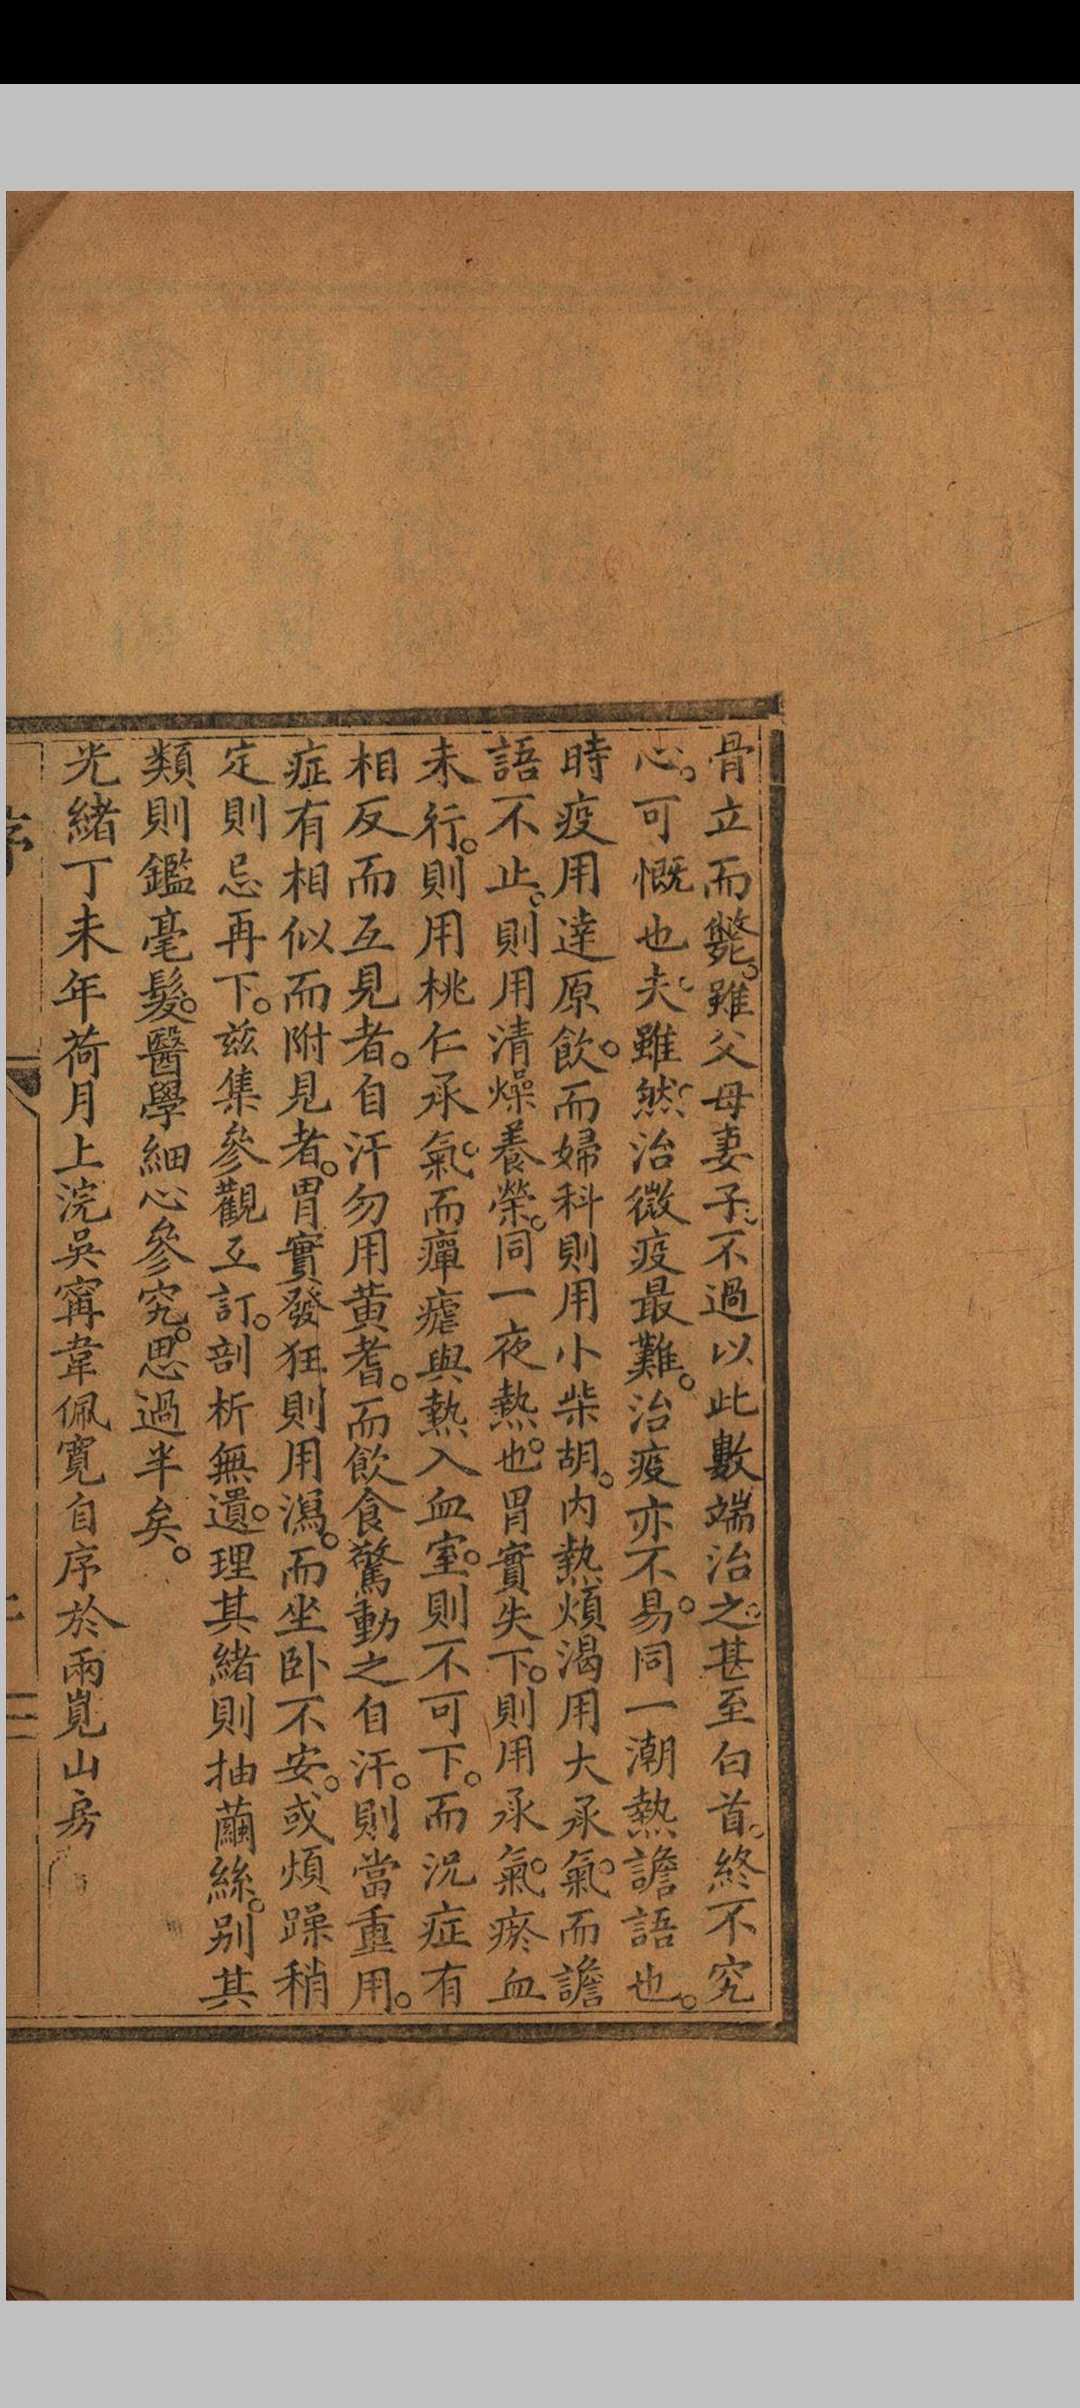 骨立而斃。雖父母妻子。不過以此數端治之。甚至白首。終不究
心。可慨也。夫雖然。治微疫最難。治疫亦不易。同一潮熱譫語也。
時疫用達原飲。而婦科則用小柴胡。内熱煩渴用大承氣。而譫
語不止。則用清燥養榮。同一夜熱也。胃實失下。則用承氣。瘀血
未行。則用桃仁承氣。而癉瘧與熱入血室。則不可下。而況症有
相反而互見者。自汗勿用黄耆。而飲食驚動之自汗。則當重用。
症有相似而附見者。胃實發狂則用瀉。而坐卧不安。或煩躁稍
定則忌再下。兹集參觀互訂。剖析無遺。理其緒則抽繭絲。别其
類則鑑毫髮。醫學細心參究。思過半矣。
光緒丁未年荷月上浣吳甯韋佩寛自序於兩峴山房
序
三